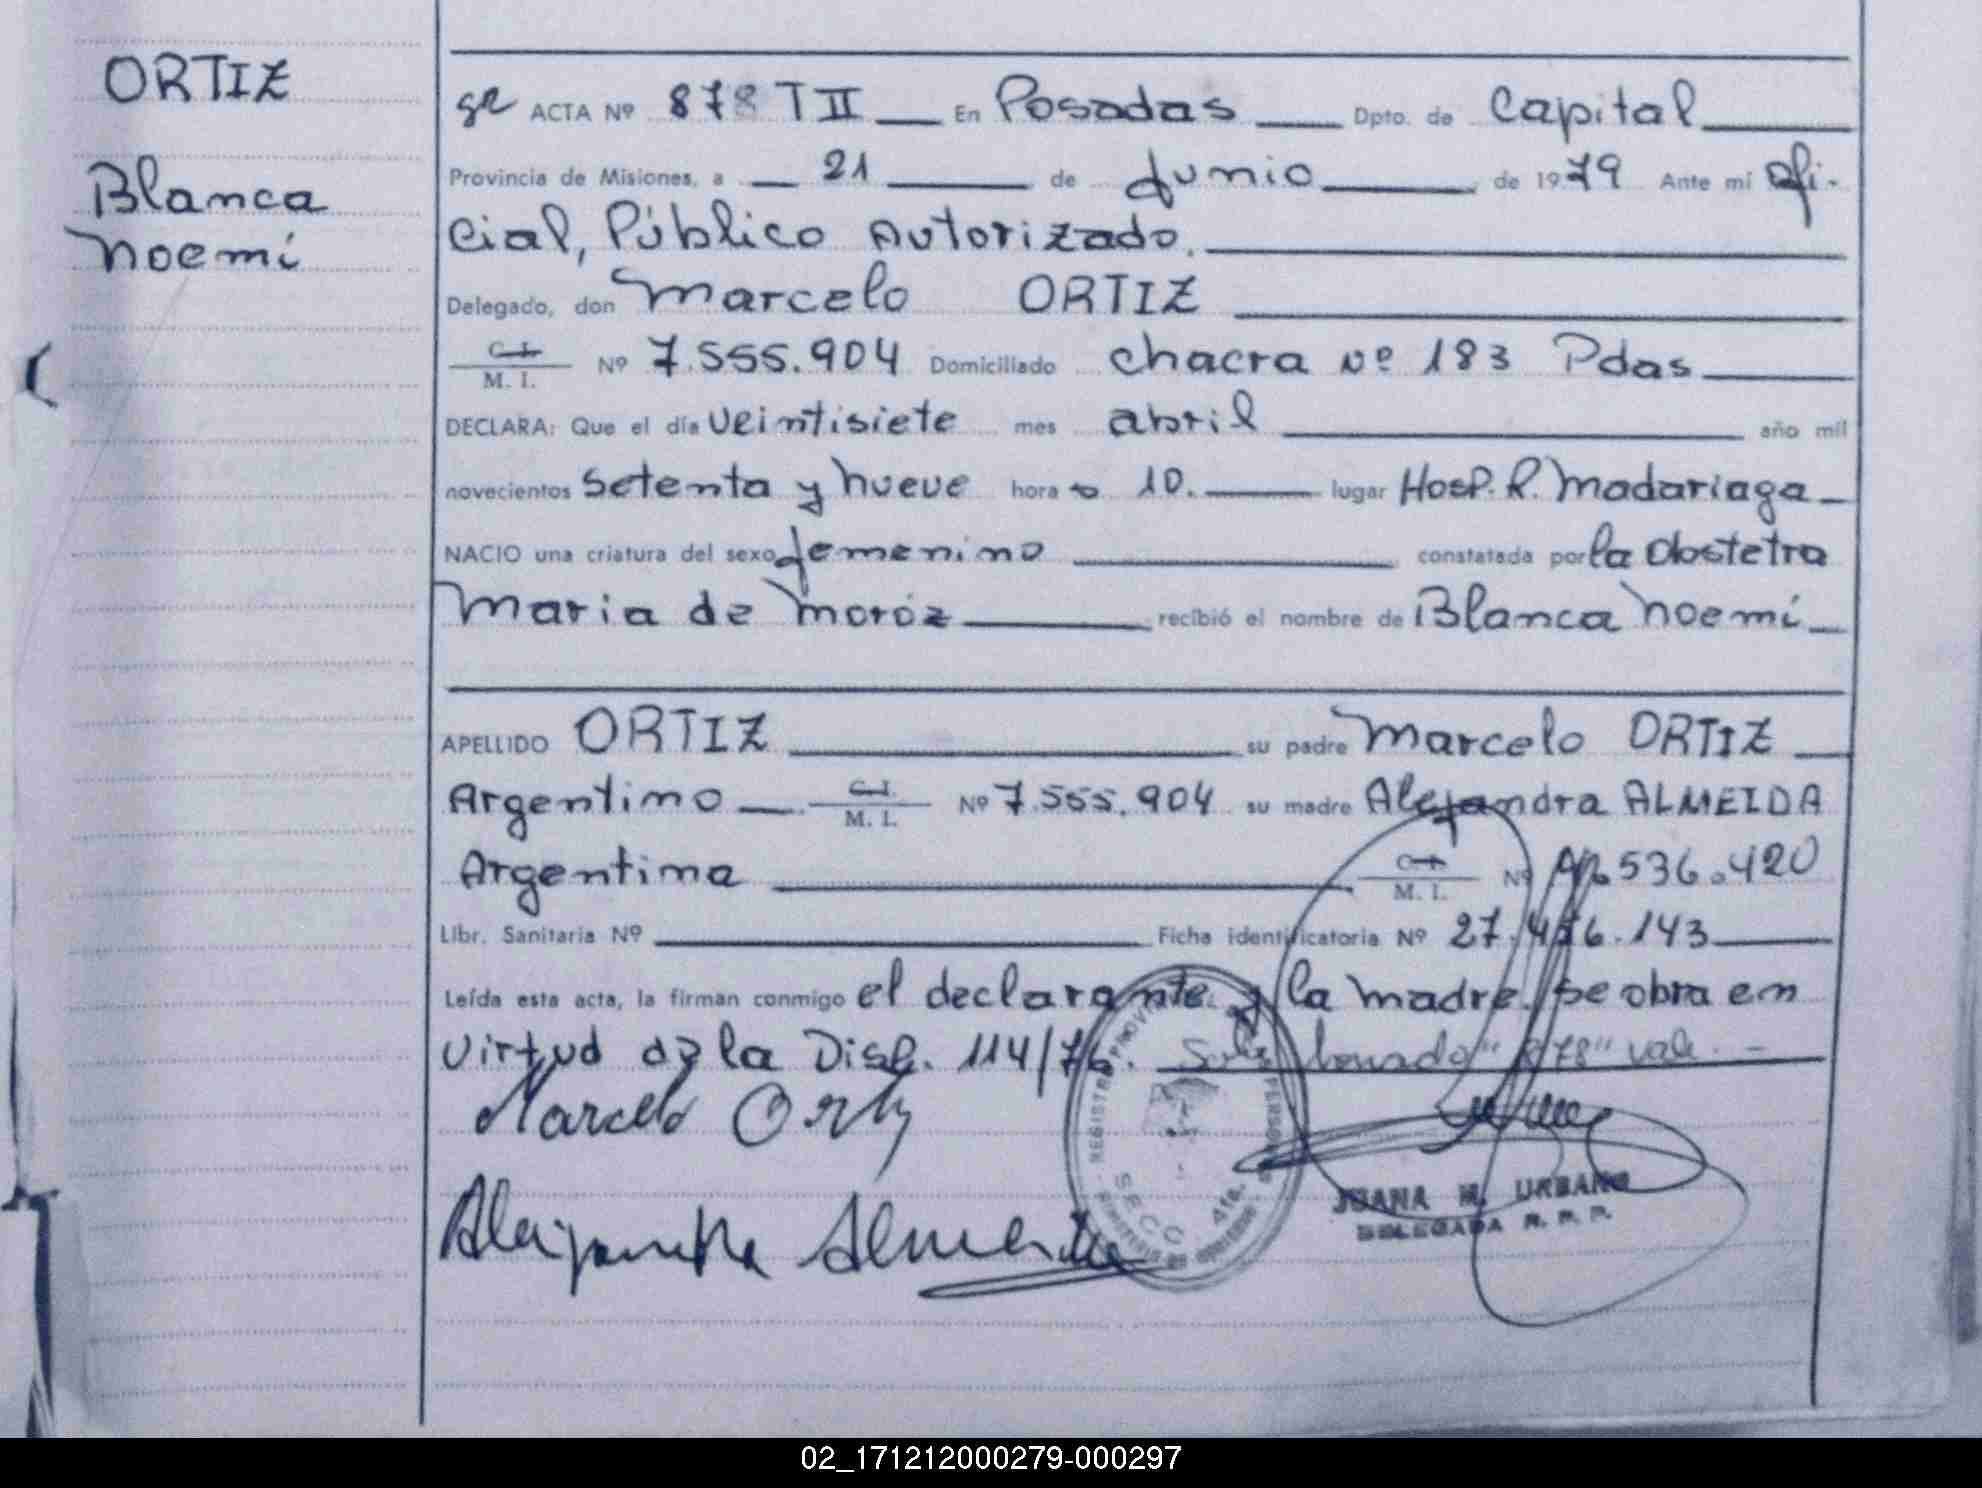 ORTIZ
Blanca
Noemí
ACTA Nº 878 T II En Posadas Dpto. de Capital
Provincia de Misiones, a 21 de Junio de 1979 Ante mí Ofi-
cial, Público Autorizado.
Delegado, don Marcelo ORTIZ
C. I.
M. I. Nº 7.555.904 Domiciliado Chacra Nº 183 Pdas
DECLARA: Que el día veintisiete mes abril año mil
novecientos setenta y nueve hora 10. lugar Hosp. R. Madariaga
NACIO una criatura del sexo femenino constatada por la Obstetra
Maria de Moróz recibió el nombre de Blanca Noemí
APELLIDO ORTIZ su padre Marcelo ORTIZ
Argentino C. I.
M. I. Nº 7.555.904 su madre Alejandra ALMEIDA
Argentina C. I.
M. I. Nº 536.420
Libr. Sanitaria Nº Ficha identificatoria Nº 27.476.143
Leída esta acta, la firman conmigo el declarante y la madre. Se obra en
virtud de la Disp. 114/76. borrado "878" vale.-
Marcelo Ortiz
Alejandra Almeida
REGISTRO PROVINCIAL
PERSONAS
SECC 4ta.
JUANA M. URBANO
DELEGADA R. P. P.
02_171212000279-000297